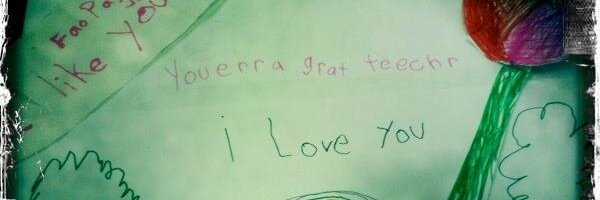 I like You
Youerra grat teechr
I Love You